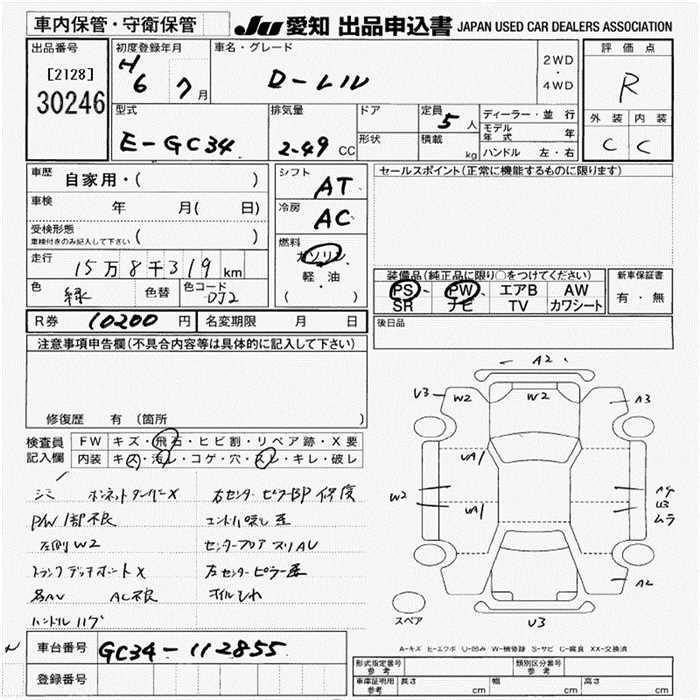 車内保管・守衛保管
JU 愛知 出品申込書 JAPAN USED CAR DEALERS ASSOCIATION
出品番号
[2128]
30246
初度登録年月
H
6 7 月
車名・グレード
ローレル
2WD
・
4WD
評価点
R
外装 内装
C C
型式
E-GC34
排気量
2.49 CC
ドア
形状
定員
5 人
積載
kg
ディーラー・並行
モデル年式 年
ハンドル 左・右
車歴 自家用・( )
車検 年 月( 日)
受検形態
車検付きのみ記入して下さい ( )
走行 15万8千319 km
色 緑 色替 色コード DJ2
シフト AT
冷房 AC
燃料
ガソリン
軽・油
( )
セールスポイント(正常に機能するものに限ります)
装備品(純正品に限り○をつけてください)
PS PW エアB AW
SR ナビ TV カワシート
新車保証書
有・無
R券 10200 円 名変期限 月 日
後日品
注意事項申告欄(不具合内容等は具体的に記入して下さい)
修復歴 有 (箇所 )
検査員記入欄
FW キズ・飛石・ヒビ割・リペア跡・X要
内装 キズ・汚レ・コゲ・穴・スレ・キレ・破レ
シミ
P/W 1部不良
左側 W2
AC不良
ハンドル ハゲ
A2
U3 W2 W2 A3
UA1
W2
UA1
A4
U3
ムラ
A2
スペア
U3
車台番号 GC34-112855
登録番号
A-キズ E-エクボ U-凹み W-補修跡 S-サビ C-腐食 XX-交換済
形式指定番号 参考
類別区分番号 参考
車庫証明用 参考 長さ cm 幅 cm 高さ cm